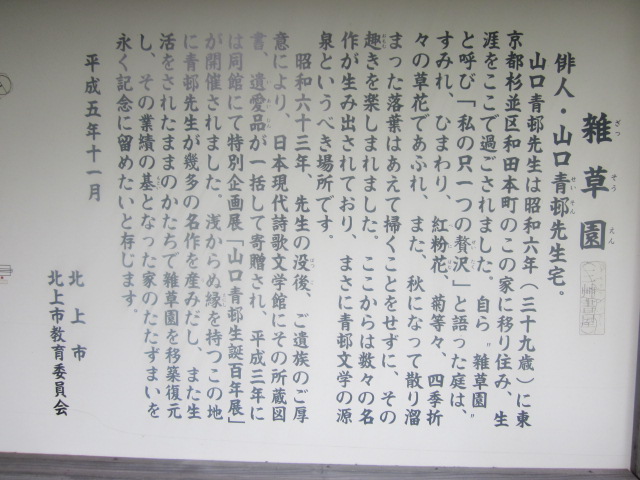 雑草園
俳人・山口青邨先生宅。
山口青邨先生は昭和六年（三十九歳）に東
京都杉並区和田本町のこの家に移り住み、生
涯をここで過ごされました。自ら〝雑草園〟
と呼び「私の只一つの贅沢」と語った庭は、
すみれ、ひまわり、紅粉花、菊等々、四季折
々の草花であふれ、また、秋になって散り溜
まった落葉はあえて掃くことをせずに、その
趣きを楽しまれました。ここからは数々の名
作が生み出されており、まさに青邨文学の源
泉というべき場所です。
昭和六十三年、先生の没後、ご遺族のご厚
意により、日本現代詩歌文学館にその所蔵図
書、遺愛品が一括して寄贈され、平成三年に
は同館にて特別企画展「山口青邨生誕百年展」
が開催されました。浅からぬ縁を持つこの地
に青邨先生が幾多の名作を産みだし、また生
活をされたままのかたちで雑草園を移築復元
し、その業績の基となった家のたたずまいを
永く記念に留めたいと存じます。
平成五年十一月
北上市
北上市教育委員会